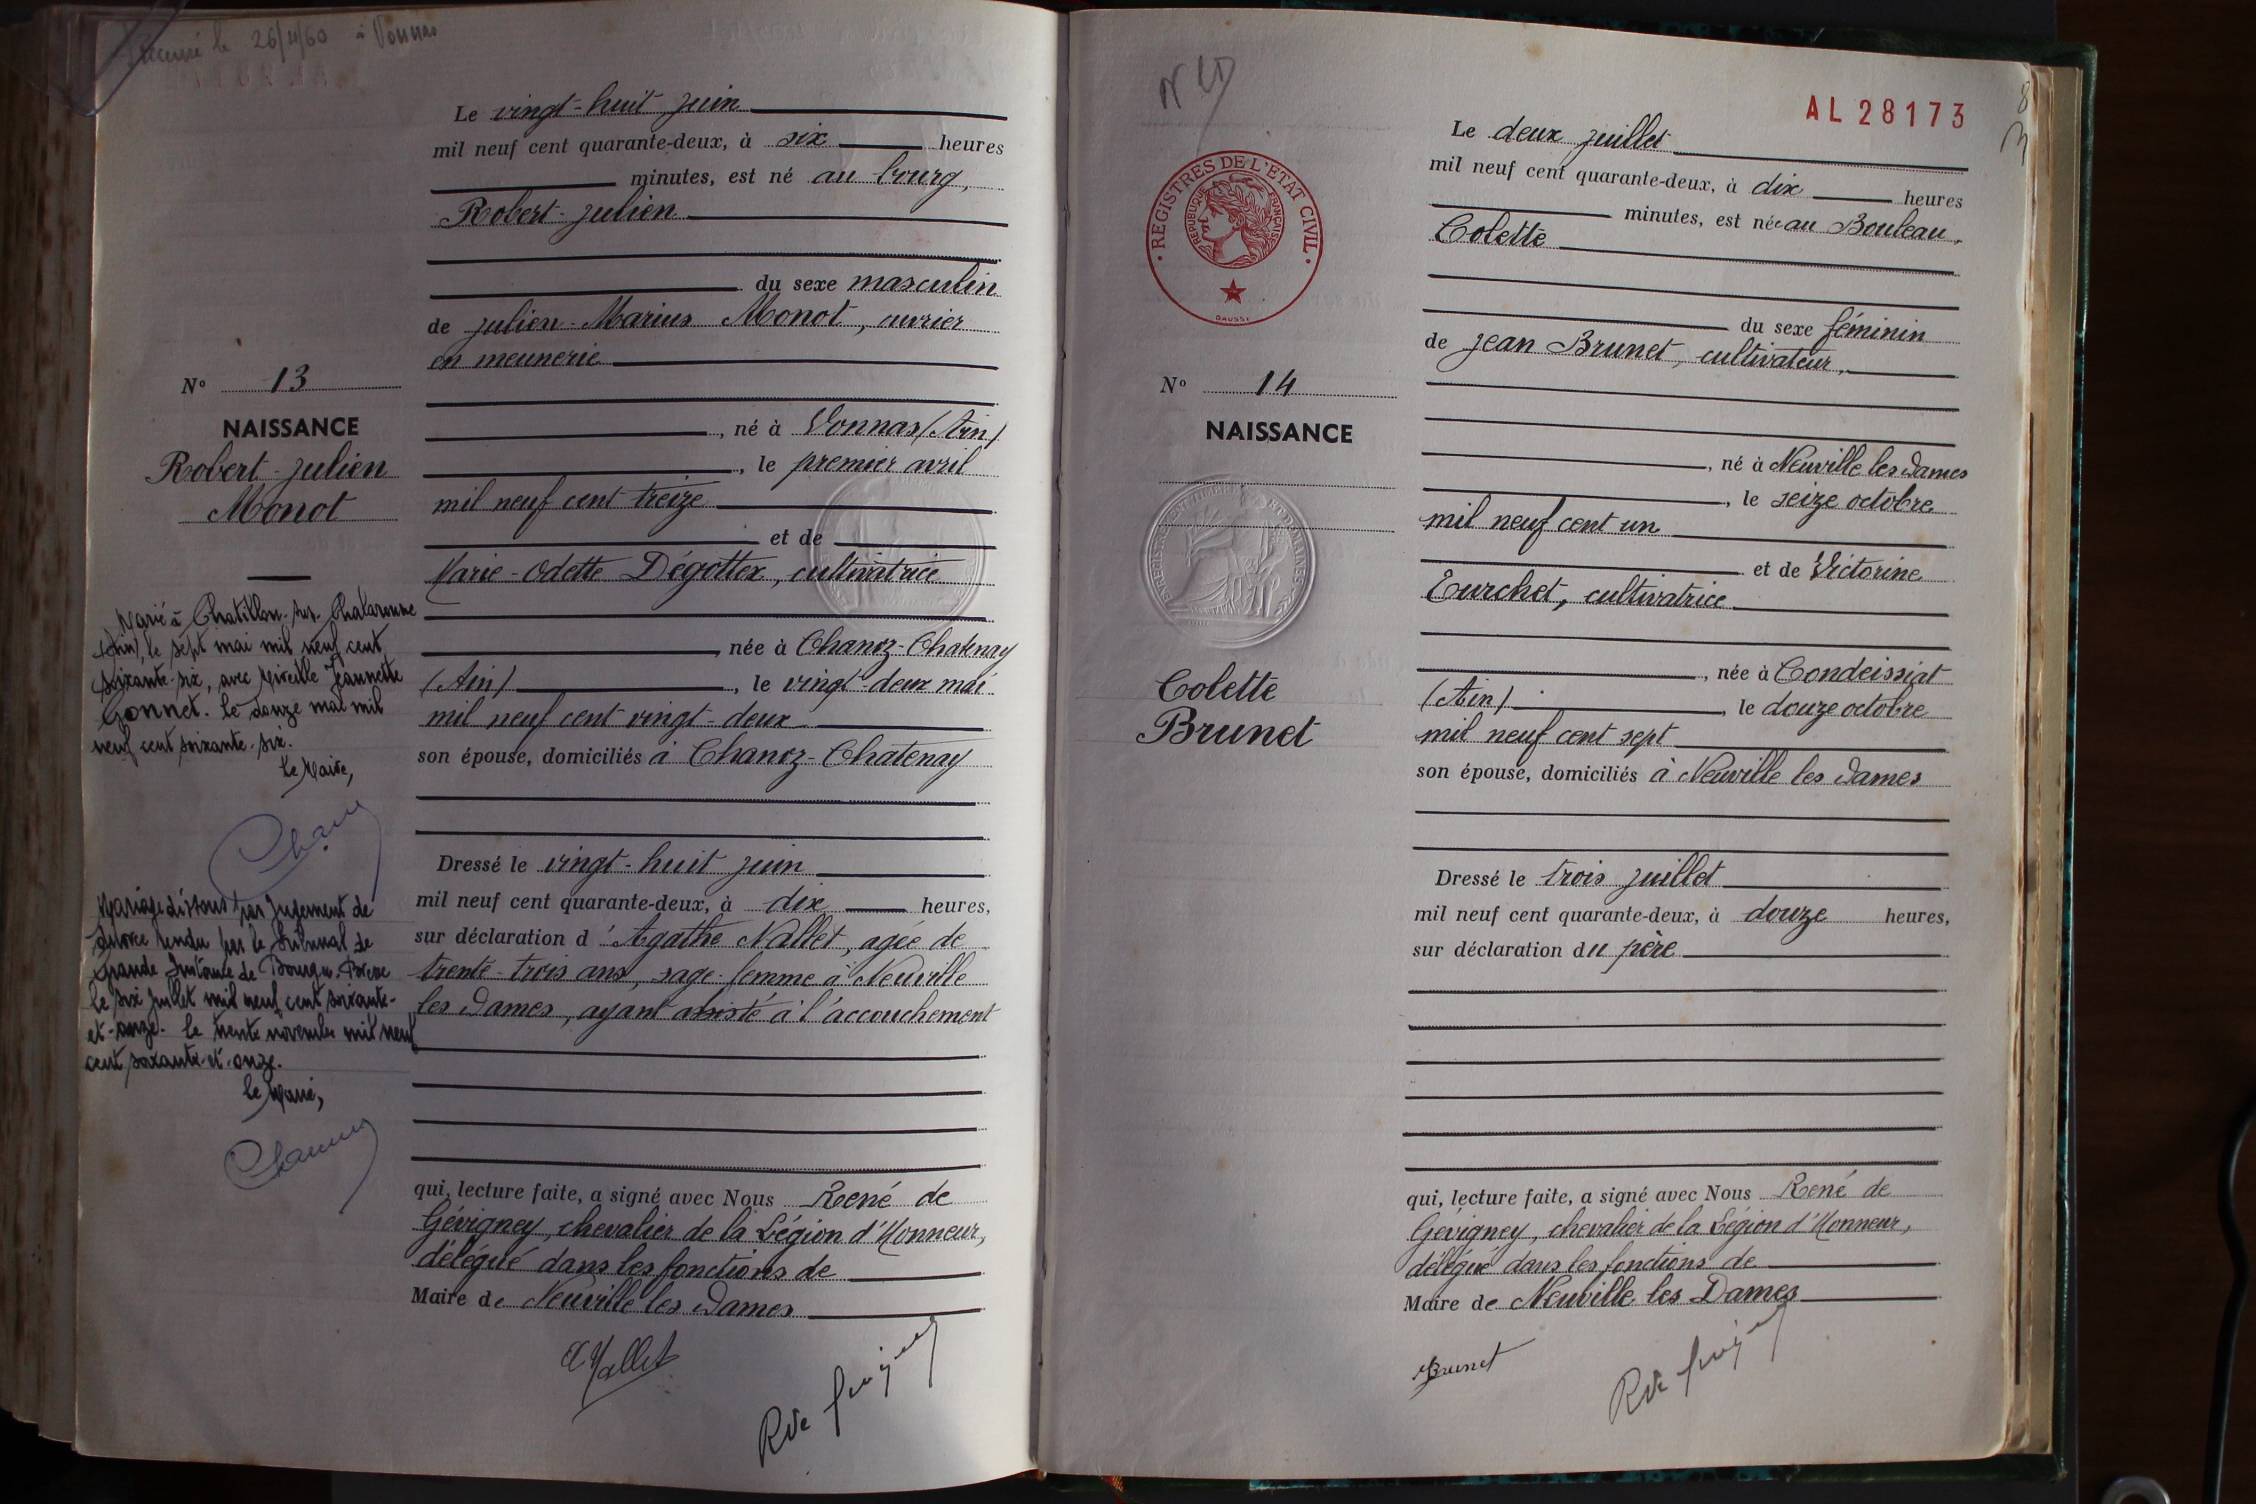 Recensé le 26/4/60 à Vonnas
Le vingt-huit juin
mil neuf cent quarante-deux, à six heures
minutes, est né au bourg,
Robert-Julien
du sexe masculin
de Julien-Marius Monot, ouvrier
en meunerie
, né à Vonnas (Ain)
, le premier avril
mil neuf cent treize
et de
Marie-Odette Dégottex, cultivatrice
, née à Chanoz-Chatenay
(Ain) , le vingt-deux mai
mil neuf cent vingt-deux
son épouse, domiciliés à Chanoz-Chatenay
Dressé le vingt-huit juin
mil neuf cent quarante-deux, à dix heures,
sur déclaration d'Agathe Nallet, agée de
trente-trois ans, sage-femme à Neuville
les Dames, ayant assisté à l'accouchement
qui, lecture faite, a signé avec Nous René de
Gévigney, chevalier de la Légion d'Honneur,
délégué dans les fonctions de
Maire de Neuville les Dames
Nallet
No 13
NAISSANCE
Robert-Julien
Monot
Marié à Chatillon-sur-Chalaronne
(Ain), le sept mai mil neuf cent
soixante-six, avec Mireille Jeannette
Gonnet. le douze mai mil
neuf cent soixante-six.
le Maire,
Mariage dissous par jugement de
divorce rendu par le Tribunal de
Grande Instance de Bourg-en-Bresse
le six juillet mil neuf cent soixante-
et-onze. le trente novembre mil neuf
cent soixante-et-onze.
le Maire,
AL 28173
REGISTRES DE L'ETAT CIVIL
REPUBLIQUE FRANÇAISE
DAUSSY
No 14
NAISSANCE
Colette
Brunet
Le deux juillet
mil neuf cent quarante-deux, à dix heures
minutes, est née au Bouleau,
Colette
du sexe féminin
de Jean Brunet, cultivateur,
, né à Neuville les Dames
, le seize octobre
mil neuf cent un
et de Victorine
Turchet, cultivatrice
, née à Condeissiat
(Ain) , le douze octobre
mil neuf cent sept
son épouse, domiciliés à Neuville les Dames
Dressé le trois juillet
mil neuf cent quarante-deux, à douze heures,
sur déclaration du père
qui, lecture faite, a signé avec Nous René de
Gévigney, chevalier de la Légion d'Honneur,
délégué dans les fonctions de
Maire de Neuville les Dames
Brunet